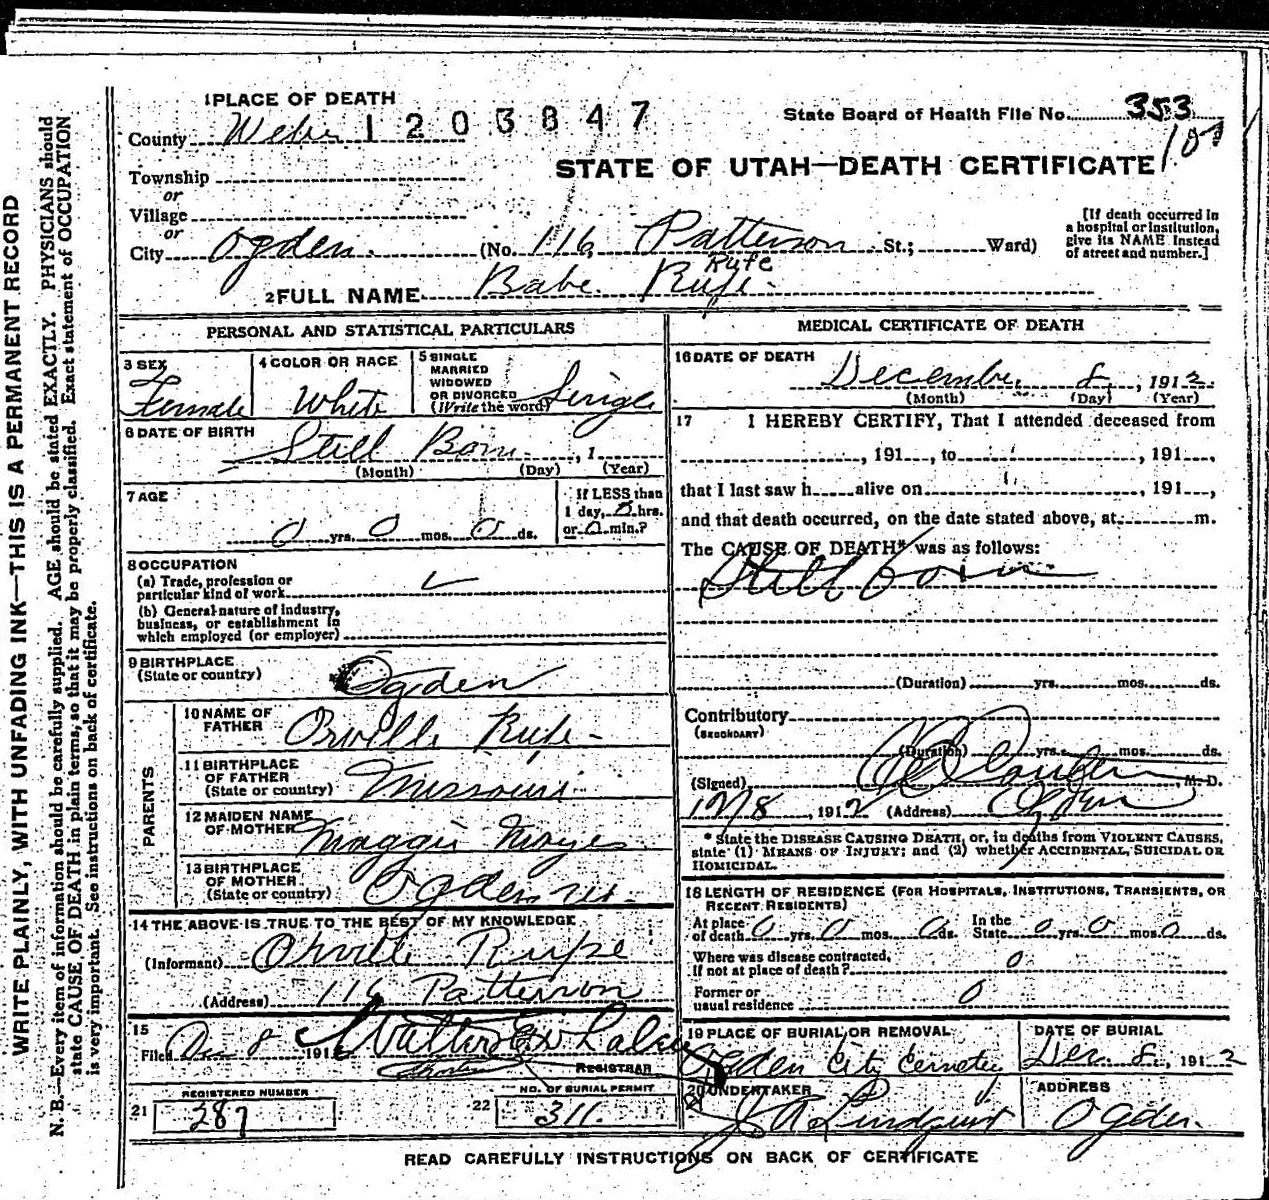 1 PLACE OF DEATH
County Weber 1 2 0 3 8 4 7
State Board of Health File No. 353
107
STATE OF UTAH—DEATH CERTIFICATE
Township
or
Village
or
City Ogden. (No. 116 Patterson St.; Ward)
[If death occurred in a hospital or institution, give its NAME instead of street and number.]
Rufe
2 FULL NAME Babe Rufe.
PERSONAL AND STATISTICAL PARTICULARS
3 SEX Female
4 COLOR OR RACE White
5 SINGLE MARRIED WIDOWED OR DIVORCED (Write the word) Single
6 DATE OF BIRTH Still Born , 1
(Month) (Day) (Year)
7 AGE 0 yrs. 0 mos. 0 ds.
If LESS than 1 day, 0 hrs. or 0 min.?
8 OCCUPATION
(a) Trade, profession or particular kind of work
(b) General nature of industry, business, or establishment in which employed (or employer)
9 BIRTHPLACE (State or country) Ogden
PARENTS
10 NAME OF FATHER Orville Rufe
11 BIRTHPLACE OF FATHER (State or country) Missouri
12 MAIDEN NAME OF MOTHER Maggie
13 BIRTHPLACE OF MOTHER (State or country) Ogden
14 THE ABOVE IS TRUE TO THE BEST OF MY KNOWLEDGE
(Informant) Orville Rufe
(Address) 116 Patterson
15
Filed Dec 8 191 2 Walter
REGISTRAR
REGISTERED NUMBER
21 287
NO. OF BURIAL PERMIT
22 311.
MEDICAL CERTIFICATE OF DEATH
16 DATE OF DEATH
December 8, 1912.
(Month) (Day) (Year)
17 I HEREBY CERTIFY, That I attended deceased from
, 191 , to , 191 ,
that I last saw h alive on , 191 ,
and that death occurred, on the date stated above, at m.
The CAUSE OF DEATH* was as follows:
Still born
(Duration) yrs. mos. ds.
Contributory
(SECONDARY)
(Duration) yrs. mos. ds.
(Signed) M. D.
12/8 , 1912 (Address) Ogden
* State the DISEASE CAUSING DEATH, or, in deaths from VIOLENT CAUSES, state (1) MEANS OF INJURY; and (2) whether ACCIDENTAL, SUICIDAL OR HOMICIDAL.
18 LENGTH OF RESIDENCE (FOR HOSPITALS, INSTITUTIONS, TRANSIENTS, OR RECENT RESIDENTS)
At place of death 0 yrs. 0 mos. 0 ds. In the State 0 yrs. 0 mos. 0 ds.
Where was disease contracted, if not at place of death? 0
Former or usual residence 0
19 PLACE OF BURIAL OR REMOVAL Ogden City Cemetery
DATE OF BURIAL Dec. 8, 1912
20 UNDERTAKER J A Lindquist
ADDRESS Ogden.
READ CAREFULLY INSTRUCTIONS ON BACK OF CERTIFICATE
WRITE PLAINLY, WITH UNFADING INK—THIS IS A PERMANENT RECORD
N. B.—Every item of information should be carefully supplied. AGE should be stated EXACTLY. PHYSICIANS should
state CAUSE OF DEATH in plain terms, so that it may be properly classified. Exact statement of OCCUPATION
is very important. See instructions on back of certificate.